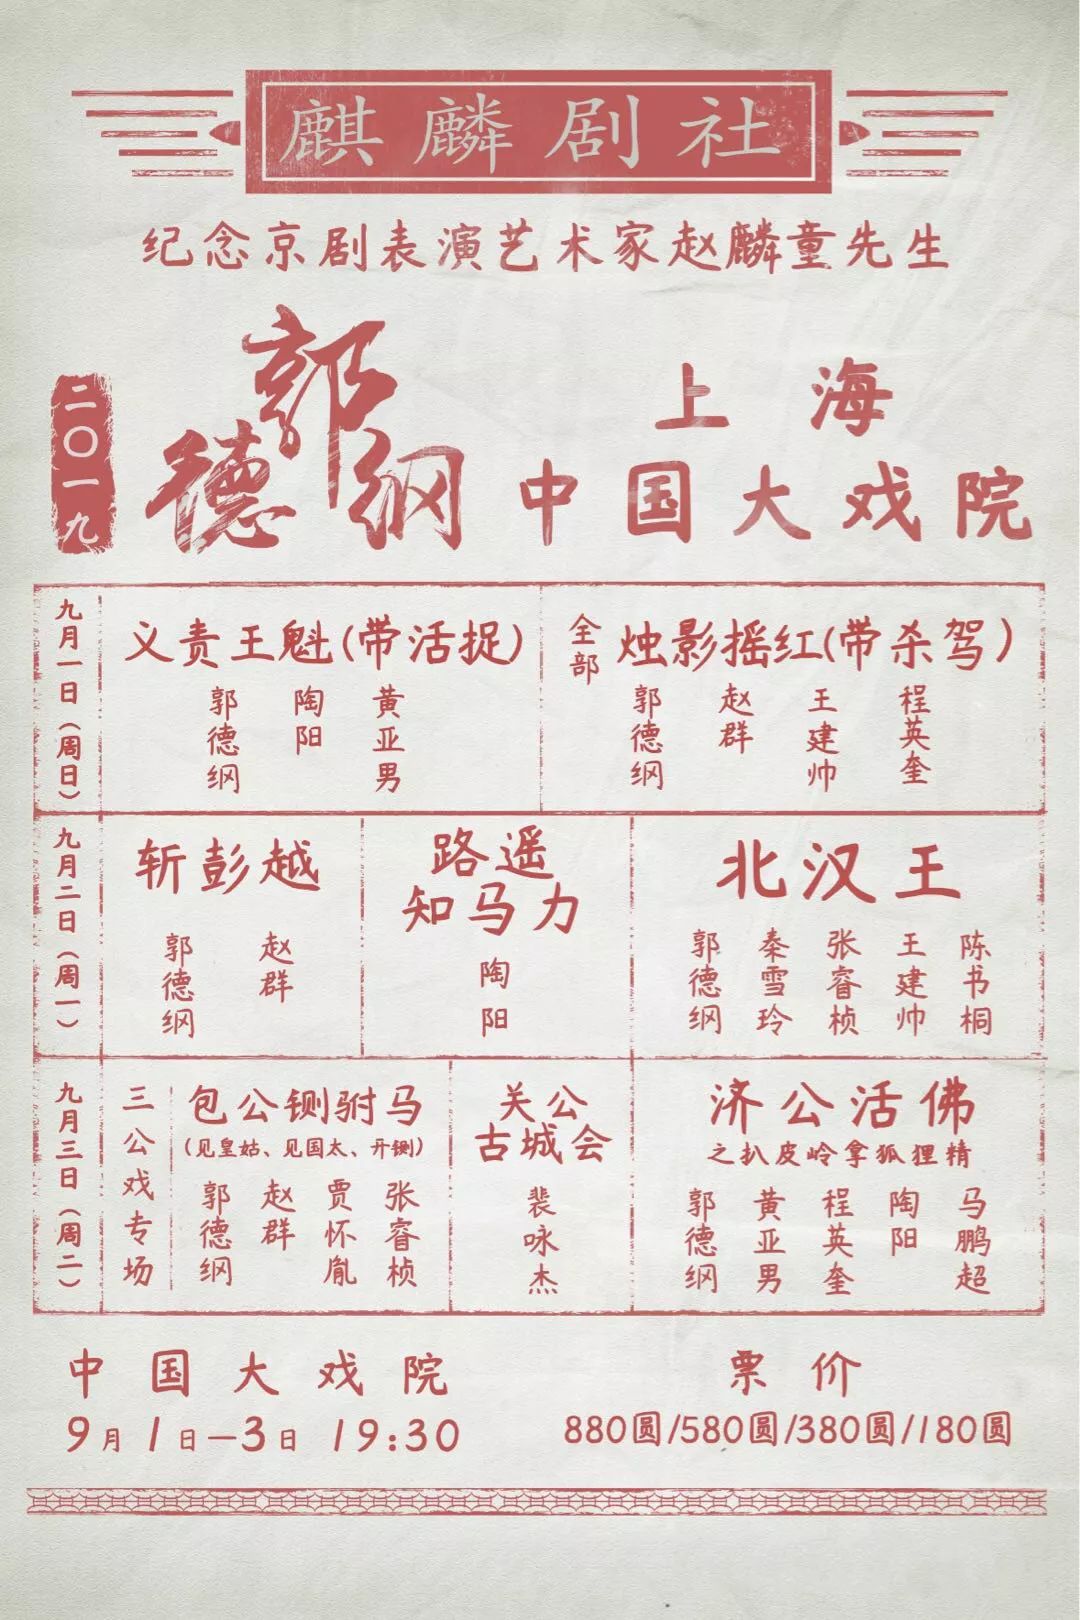 麒麟剧社
纪念京剧表演艺术家赵麟童先生
二〇一九
郭德纲
上海
中国大戏院
九月一日（周日）
义责王魁（带活捉）
郭德纲
陶阳
黄亚男
全部
烛影摇红（带杀驾）
郭德纲
赵群
王建帅
程英奎
九月二日（周一）
斩彭越
郭德纲
赵群
路遥
知马力
陶阳
北汉王
郭德纲
秦雪玲
张睿桢
王建帅
陈书桐
九月三日（周二）
三公戏专场
包公铡驸马
（见皇姑、见国太、开铡）
郭德纲
赵群
贾怀胤
张睿桢
关公
古城会
裴咏杰
济公活佛
之扒皮岭拿狐狸精
郭德纲
黄亚男
程英奎
陶阳
马鹏超
中国大戏院
9月1日—3日 19:30
票价
880圆/580圆/380圆/180圆